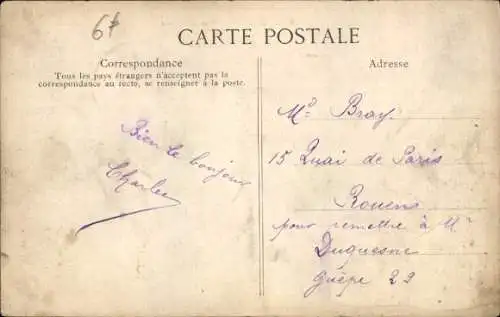 6f
CARTE POSTALE
Correspondance
Tous les pays étrangers n'acceptent pas la
correspondance au recto, se renseigner à la poste.
Bien le bonjour
Charles
Adresse
Md Bray
15 Quai de Paris
Rouens
pour remettre à Mr
Duquesne
guêpe 29